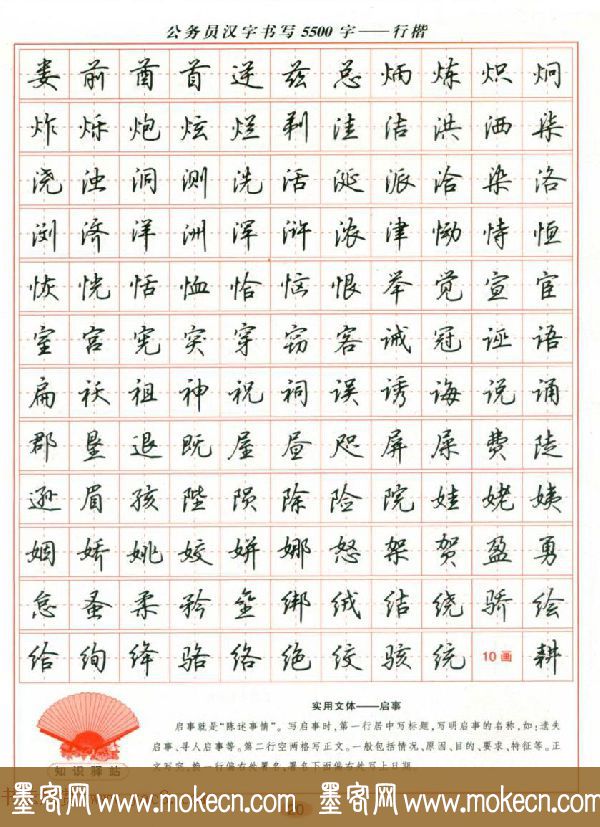 公务员汉字书写5500字——行楷
娄 前 酋 首 逆 兹 总 炳 炼 炽 炯
炸 烁 炮 炫 烂 剃 洼 洁 洪 洒 柒
浇 浊 洞 测 洗 活 涎 派 洽 染 洛
浏 济 洋 洲 浑 浒 浓 津 恸 恃 恒
恢 恍 恬 恤 恰 恼 恨 举 觉 宣 宦
室 宫 宪 突 穿 窃 客 诫 冠 诬 语
扁 袄 祖 神 祝 祠 误 诱 诲 说 诵
郡 垦 退 既 屋 昼 咫 屏 屎 费 陡
逊 眉 孩 陛 陨 除 险 院 娃 姥 姨
姻 娇 姚 姣 姘 娜 怒 架 贺 盈 勇
怠 蚤 柔 矜 垒 绑 绒 结 绕 骄 绘
给 绚 绛 骆 络 绝 绞 骇 统 10画 耕
实用文体——启事
启事就是“陈述事情”。写启事时，第一行居中写标题，写明启事的名称，如：遗失
启事、寻人启事等。第二行空两格写正文。一般包括情况、原因、目的、要求、特征等。正
文写完，给一行偏右处署名，署名下两偏右处写上日期。
知识驿站
墨客网 www.mokecn.com 墨客网 www.mokecn.com